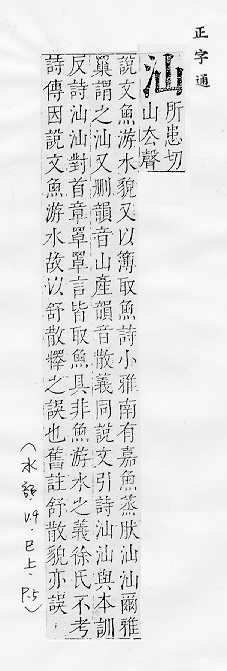 正字通
汕
所患切
山厺聲
說文魚游水貌又以簿取魚詩小雅南有嘉魚蒸肰汕汕爾雅
罺謂之汕又刪韻音山產韻音散義同說文引詩汕汕與本訓
反詩汕汕對首章罩罩言皆取魚具非魚游水之義徐氏不考
詩傳因說文魚游水故以舒散釋之誤也舊註舒散貌亦誤
(水部. V.9. 巳上. P.5)